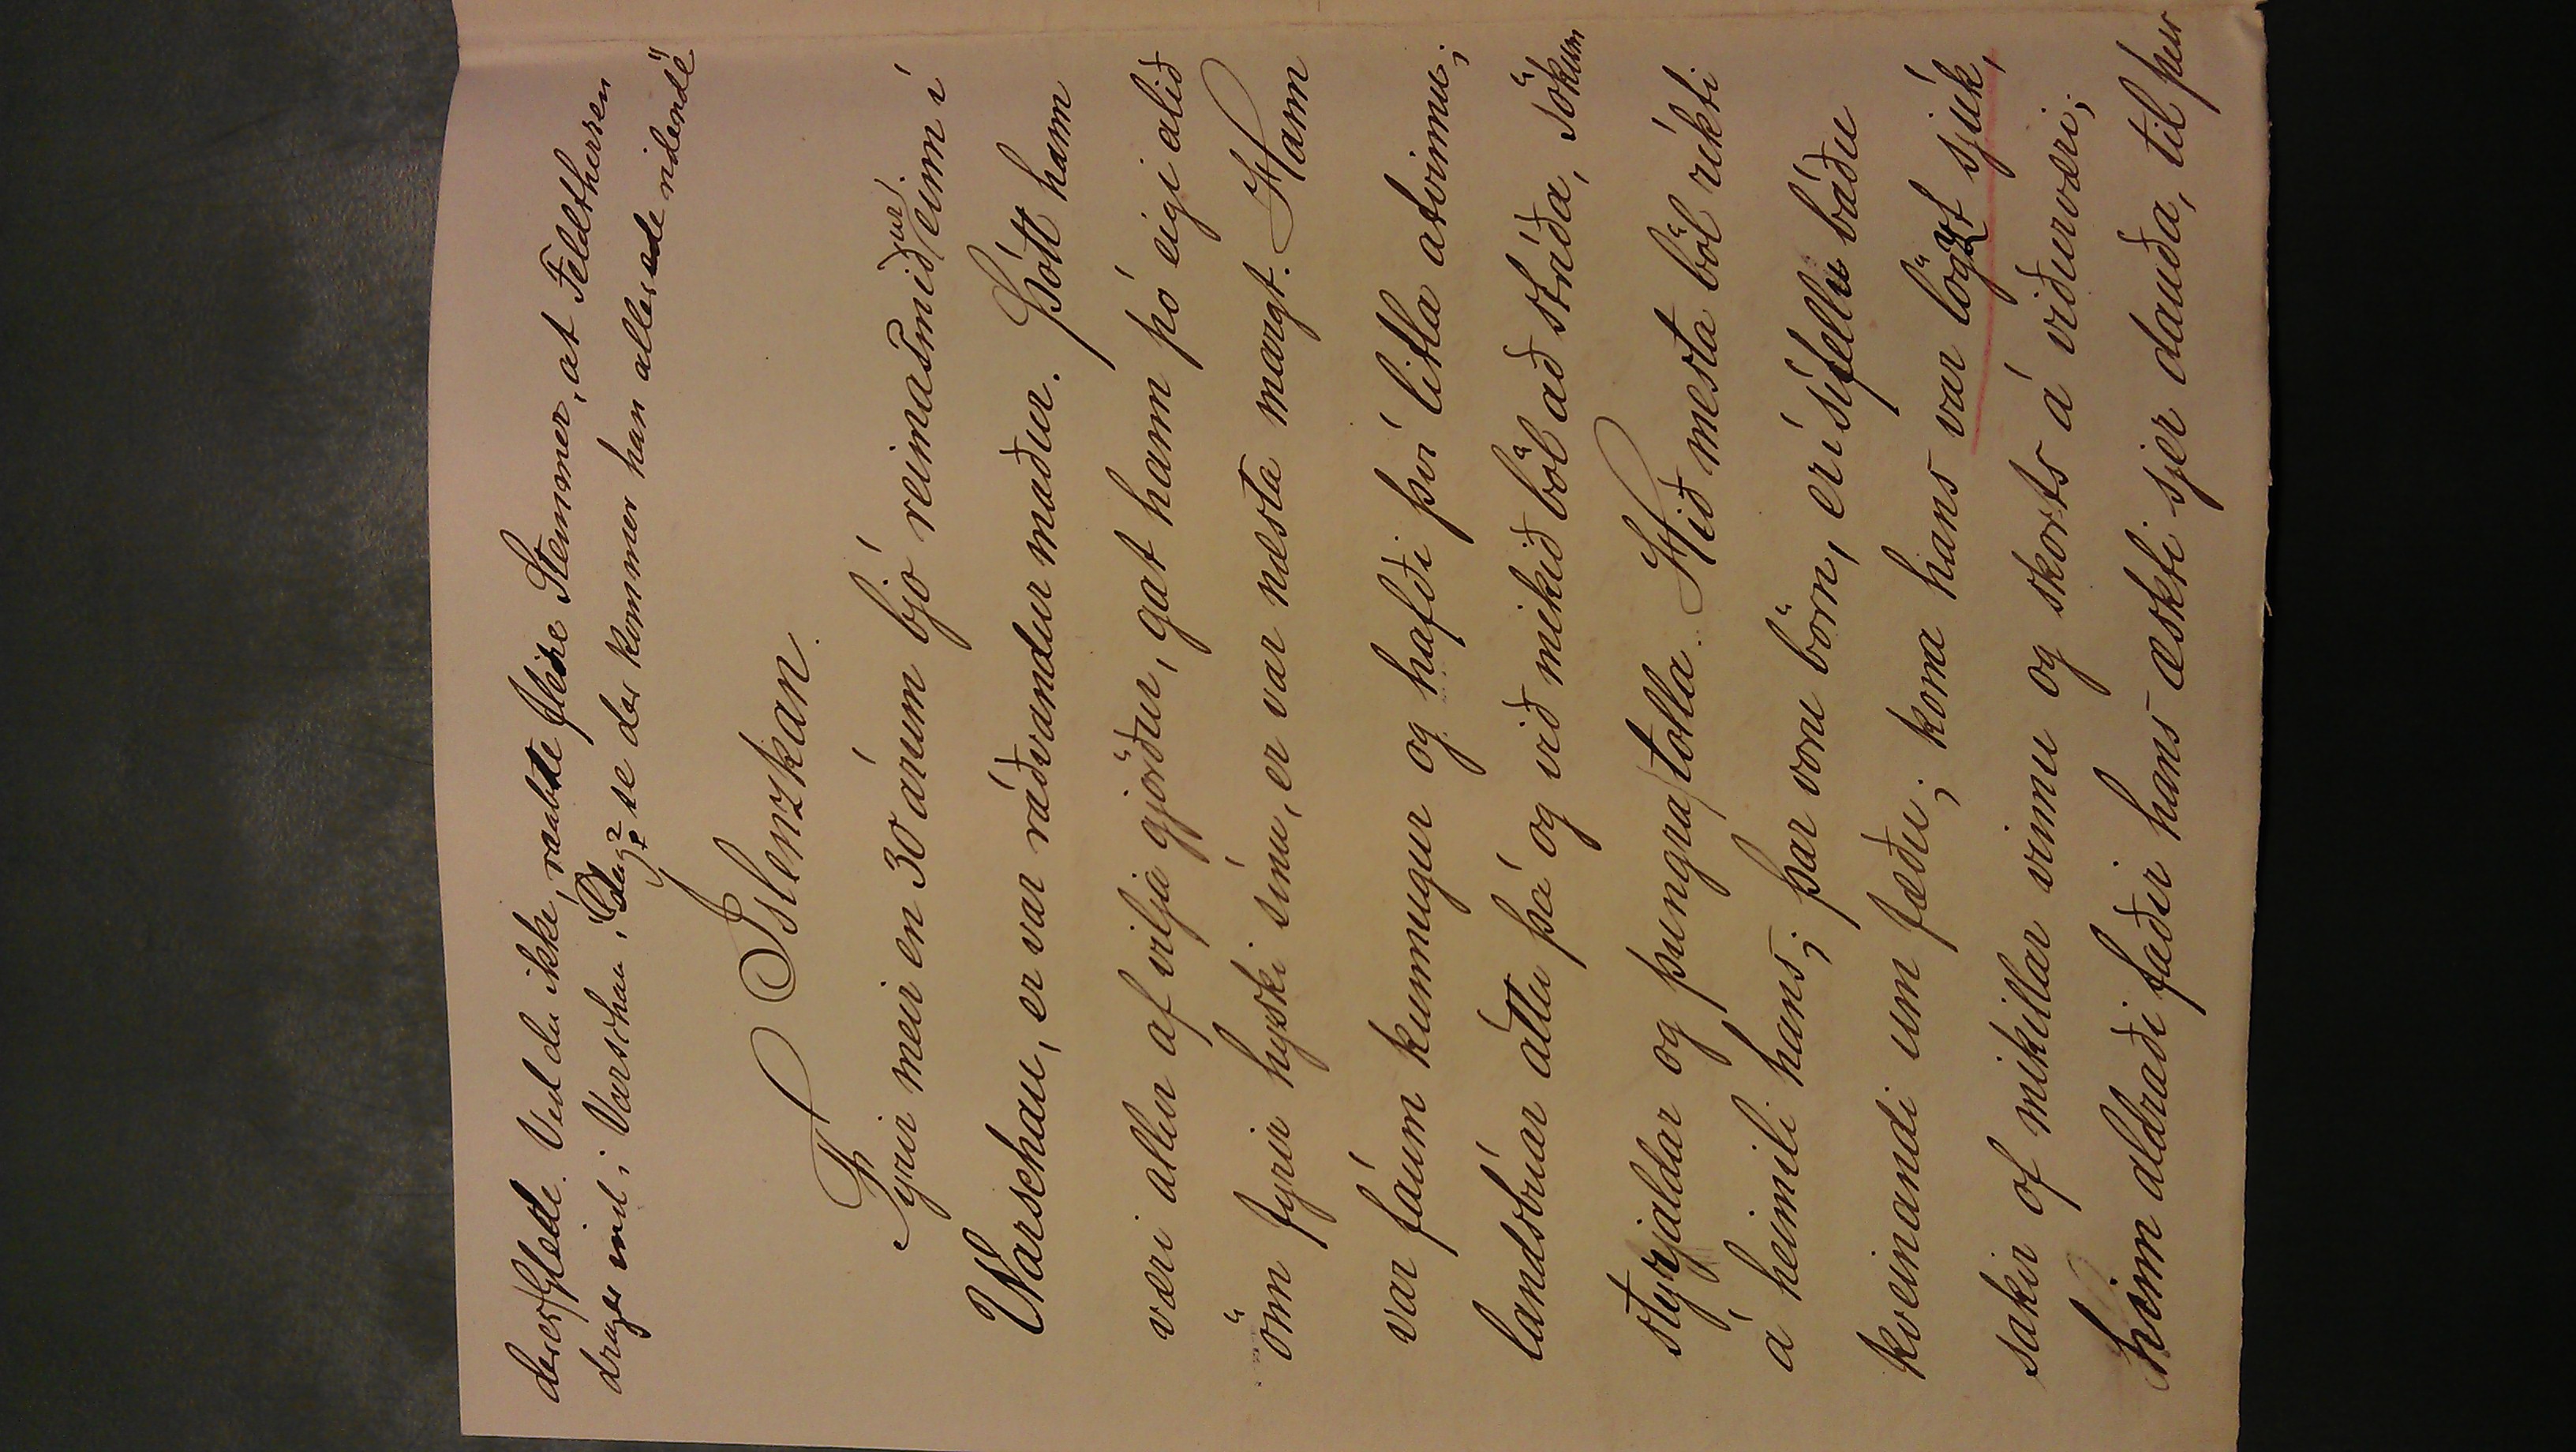 derer fylede. Ved du ikke, raabte flere Stemmer, at Feldtherren
drager ind i Varschau i Dag? se der kommer han allerede ridende"
Íslenzkan.
Fyrir meir en 30 árum bjó reimasmiður einn í
Warschau, er var ráðvandur maður. Þótt hann
væri allur af vilja gjörður, gat hann þó eigi alið
önn fyrir hyski sínu, er var næsta margt. Hann
var fáum kunnugur og hafði því litla atvinnu;
landsbúar áttu þá og við mikið böl að stríða, sökum
styrjaldar og þungra tolla. Hið mesta böl ríkti
á heimili hans; þar voru börn, er í sífellu báðu
kveinandi um fæðu; kona hans var lögzt sjúk,
sakir of mikillar vinnu og skorts á viðurværi;
hinn aldraði faðir hans æskti sjer dauða, til þess